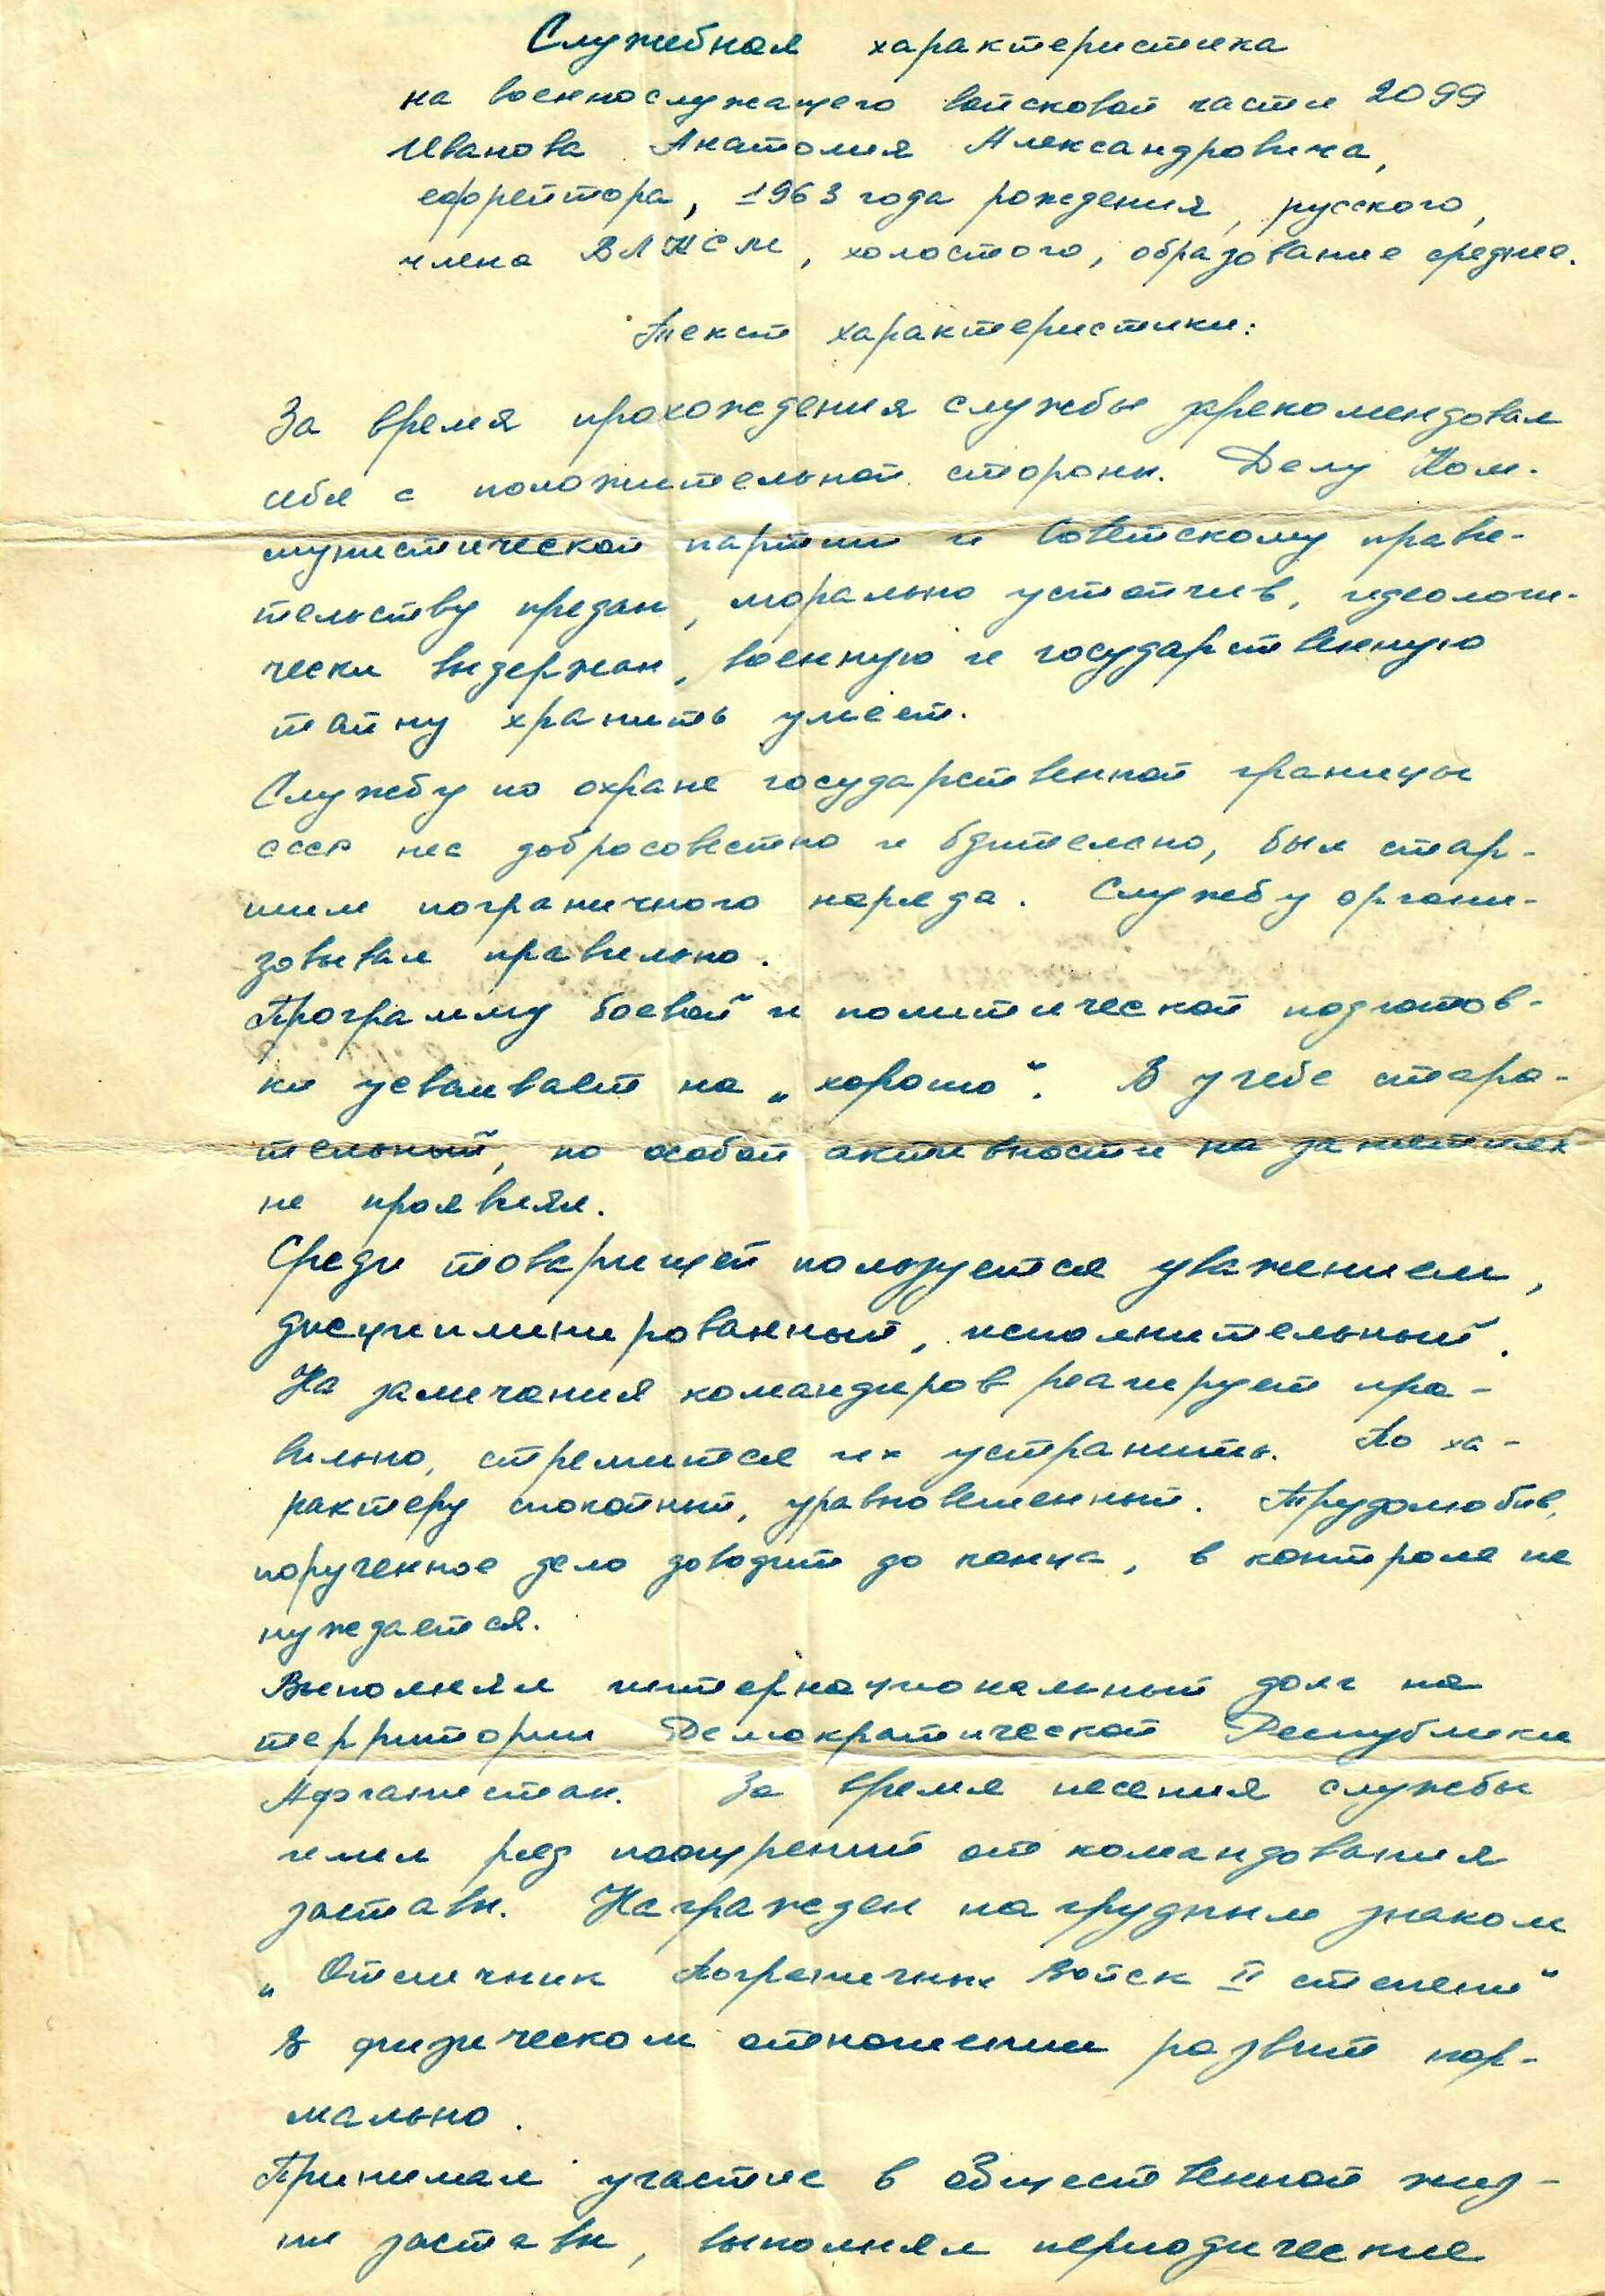 Служебная характеристика
на военнослужащего войсковой части 2099
Иванова Анатолия Александровича,
ефрейтора, 1963 года рождения, русского,
члена ВЛКСМ, холостого, образование среднее.
Текст характеристики:
За время прохождения службы зарекомендовал
себя с положительной стороны. Делу Ком-
мунистической партии и Советскому прави-
тельству предан, морально устойчив, идеологи-
чески выдержан, военную и государственную
тайну хранить умеет.
Службу по охране государственной границы
СССР нес добросовестно и бдительно, был стар-
шим пограничного наряда. Службу органи-
зовывал правильно.
Программу боевой и политической подготов-
ки усваивает на „хорошо“. В учебе стара-
тельный, но особой активности на занятиях
не проявлял.
Среди товарищей пользуется уважением,
дисциплинированный, исполнительный.
На замечания командиров реагирует пра-
вильно, стремится их устранить. По ха-
рактеру спокойный, уравновешенный. Трудолюбив,
порученное дело доводит до конца, в контроле не
нуждается.
Выполнял интернациональный долг на
территории Демократической Республики
Афганистан. За время несения службы
имел ряд поощрений от командования
заставы. Награжден нагрудным знаком
„Отличник Пограничных Войск II степени“
В физическом отношении развит нор-
мально.
Принимал участие в общественной жиз-
ни заставы, выполнял периодические